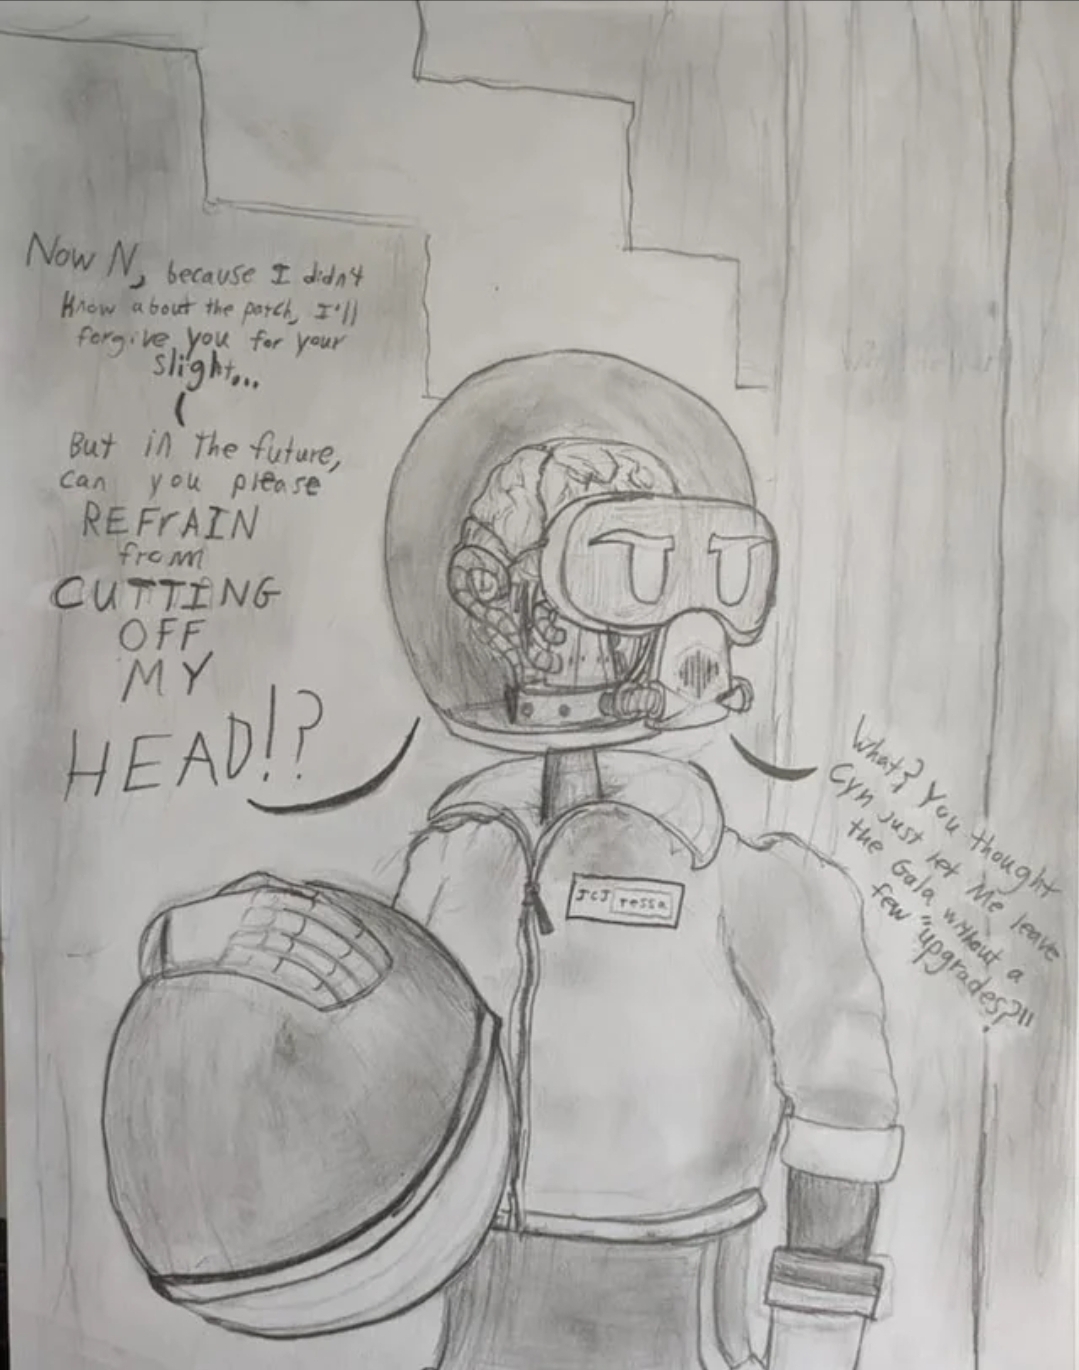 Now N, because I didn't
Know about the patch, I'll
forgive you for your
slight...
But in the future,
can you please
REFrAIN
from
CUTTING
OFF
MY
HEAD!?
What? You thought
Cyn just let Me leave
the Gala without a
few "upgrades?"
JCJ Tessa